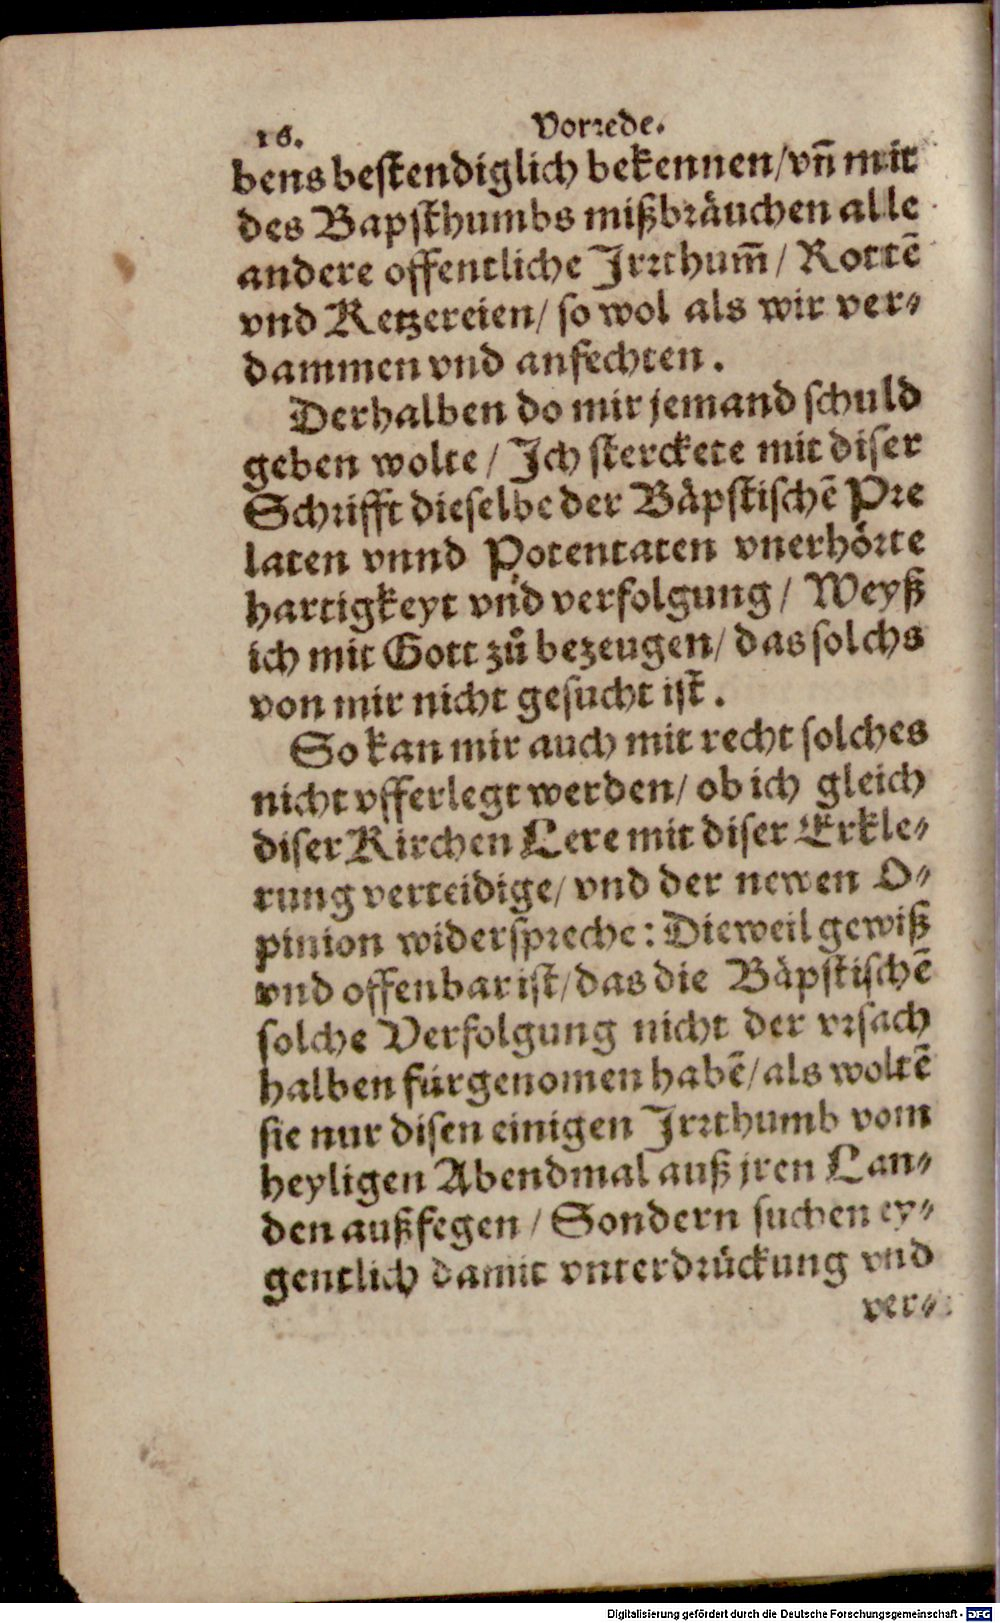 16. Vorꝛede.
bens bestendiglich bekennen/vn̄ mit
des Bapsthumbs mißbꝛäuchen alle
andere offentliche Jrꝛthum̄/ Rottē
vnd Ketzereien/ so wol als wir ver⸗
dammen vnd anfechten.
Derhalben do mir jemand schuld
geben wolte/ Jch sterckete mit diser
Schꝛifft dieselbe der Bäpstischē Pꝛe
laten vnnd Potentaten vnerhöꝛte
hartigkeyt vnd verfolgung/ Weyß
ich mit Gott zů bezeugen/ das solchs
von mir nicht gesucht ist.
So kan mir auch mit recht solches
nicht vfferlegt werden/ ob ich gleich
diser Kirchen Lere mit diser Erkle⸗
rung verteidige/ vnd der newen O⸗
pinion widerspꝛeche: Dieweil gewiß
vnd offenbar ist/das die Bäpstischē
solche Verfolgung nicht der vꝛsach
halben fürgenomen habē/als woltē
sie nur disen einigen Jrꝛthumb vom
heyligen Abendmal auß jren Lan⸗
den außfegen/ Sondern suchen ey⸗
gentlich damit vnterdꝛückung vnd
ver⸗
Digitalisierung gefördert durch die Deutsche Forschungsgemeinschaft - DFG